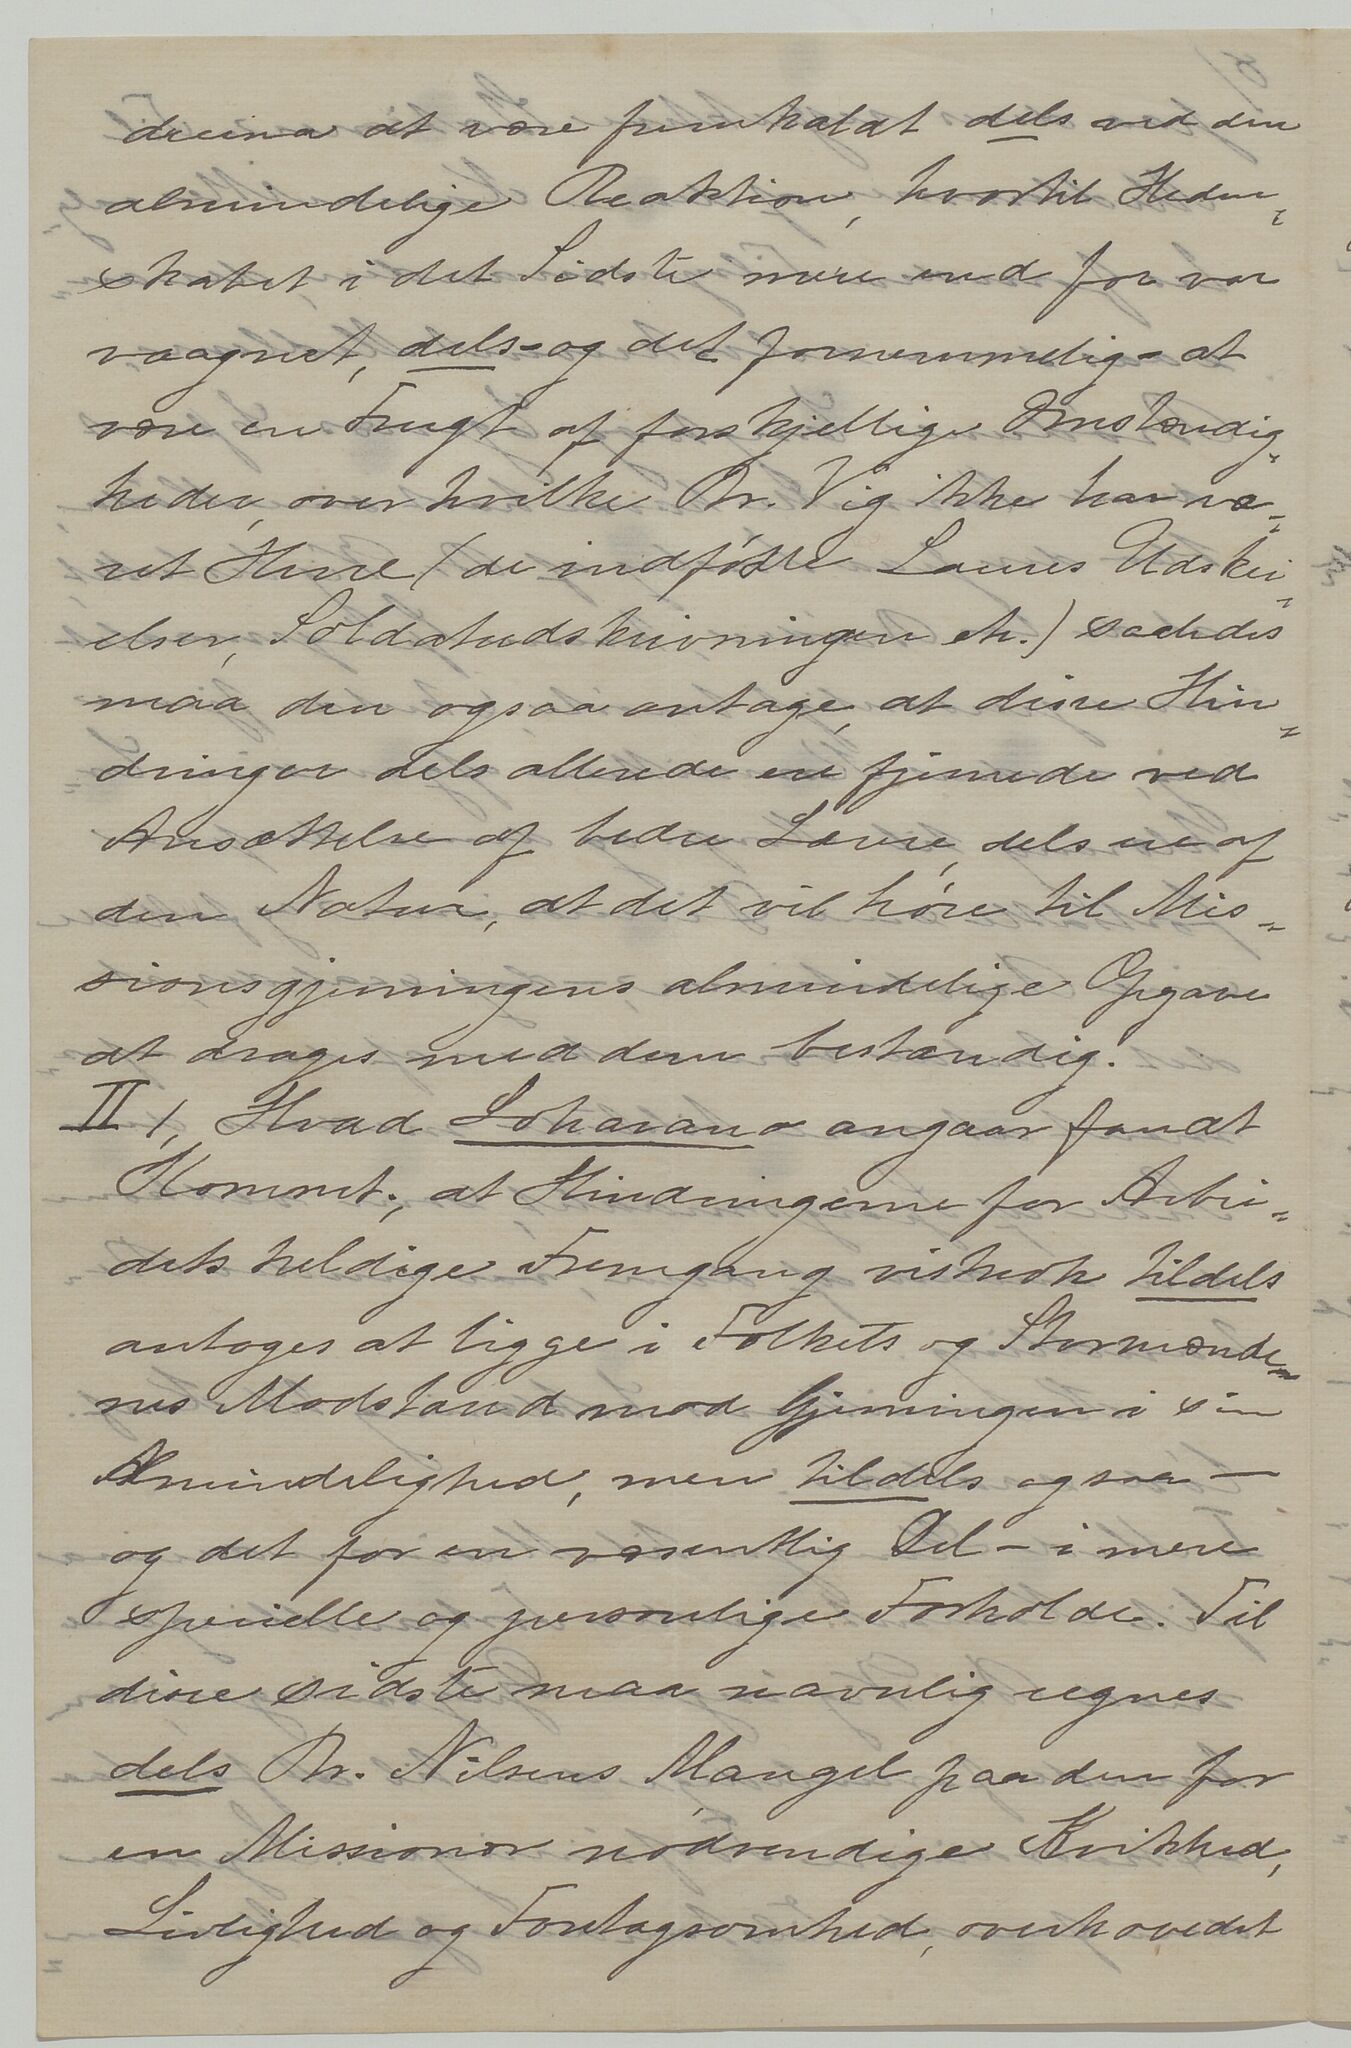 drina at være fremkaldt dels ved den
almindelige Reaktion, hvortil Heden-
skabet i det Sidste mere end før var
vaagnet, dels - og det fornemmelig - at
være en Frugt af forskjellige Omstændig-
heder, over hvilke Br. Vig ikke har væ-
ret Herre (de indfødte Læreres Udskei-
elser, Soldatudskrivningen etc.) saaledes
maa den ogsaa antage, at disse Hin-
dringer dels allerede ere fjernede ved
Ansættelse af bedre Lærere, dels ere af
den Natur, at det vil høre til Mis-
sionsgjerningens almindelige Opgave
at drages med dem bestændig.
II /, Hvad Loharano angaar fandt
Kommt., at Hindringerne for Arbei-
dets heldige Fremgang vistnok tildels
antoges at ligge i Folkets og Stormænde-
nes Modstand mod Gjerningen i sin
Almindelighed, men tildels ogsaa -
og det for en væsentlig Del - i mere
specielle og personlige Forholde. Til
disse sidste maa navnlig regnes
dels Br. Nilsens Mangel paa den for
en Missionær nødvendige Kvikhed,
Livlighed og Foretagsomhed, overhovedet